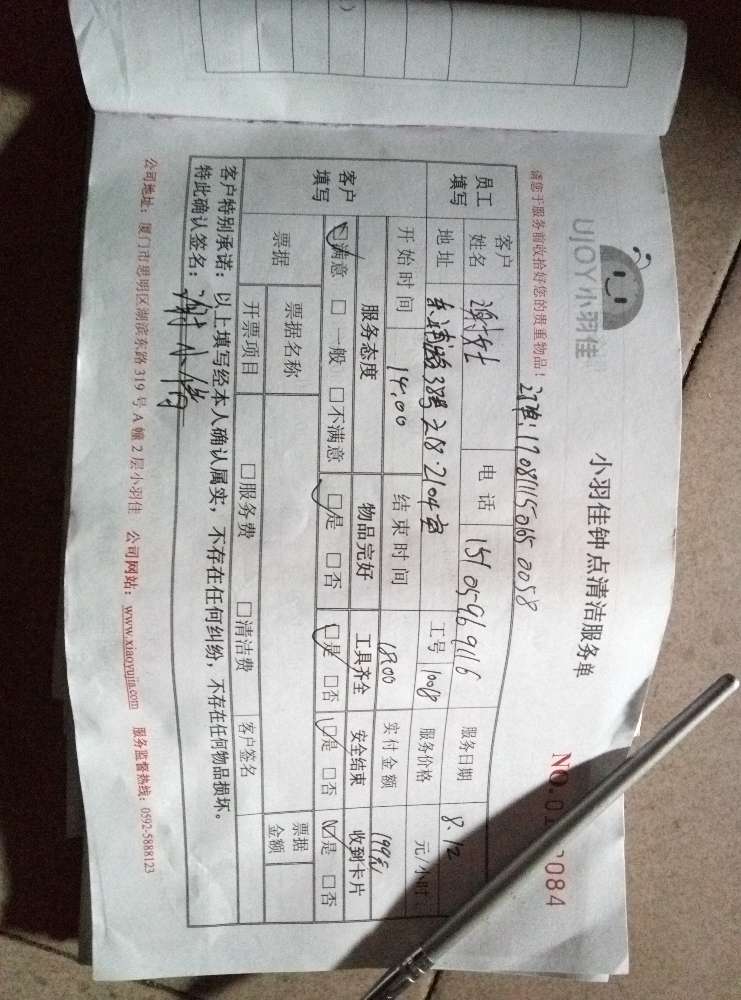 UJOY小羽佳
小羽佳钟点清洁服务单
NO.01 084
请您于服务前收拾好您的贵重物品!
订单:1708111506500058
员工填写 客户姓名 谢女士 电话 15105969116 服务日期 8.12
地址 东浦路38号218.2104室 工号 10018 服务价格 元/小时
开始时间 14:00 结束时间 18:00 实付金额 199元
客户填写 服务态度 物品完好 工具齐全 安全结束 收到卡片
☑满意 □一般 □不满意 ☑是 □否 ☑是 □否 ☑是 □否 ☑是 □否
票据 票据名称 票据金额
开票项目 □服务费 □清洁费 客户签名
客户特别承诺:以上填写经本人确认属实,不存在任何纠纷,不存在任何物品损坏。
特此确认签名:谢小倩
公司地址:厦门市思明区湖滨东路 319 号 A 幢 2 层小羽佳 公司网站:www.xiaoyujia.com 服务监督热线:0592-5888123